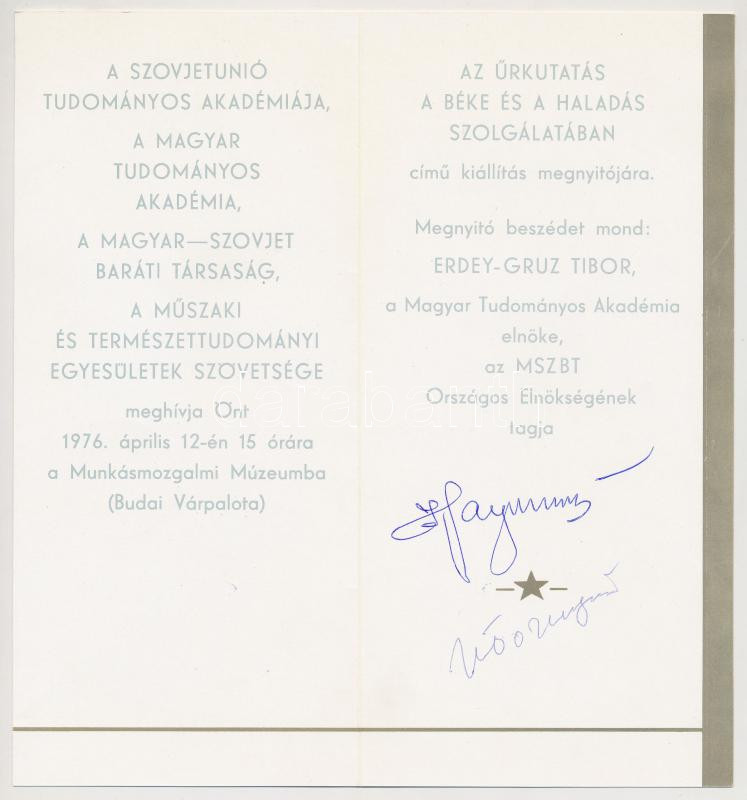 A SZOVJETUNIÓ
TUDOMÁNYOS AKADÉMIÁJA,
A MAGYAR
TUDOMÁNYOS
AKADÉMIA,
A MAGYAR—SZOVJET
BARÁTI TÁRSASÁG,
A MŰSZAKI
ÉS TERMÉSZETTUDOMÁNYI
EGYESÜLETEK SZÖVETSÉGE
meghívja Önt
1976. április 12-én 15 órára
a Munkásmozgalmi Múzeumba
(Budai Várpalota)
AZ ŰRKUTATÁS
A BÉKE ÉS A HALADÁS
SZOLGÁLATÁBAN
című kiállítás megnyitójára.
Megnyitó beszédet mond:
ERDEY-GRUZ TIBOR,
a Magyar Tudományos Akadémia
elnöke,
az MSZBT
Országos Elnökségének
tagja
darabanth